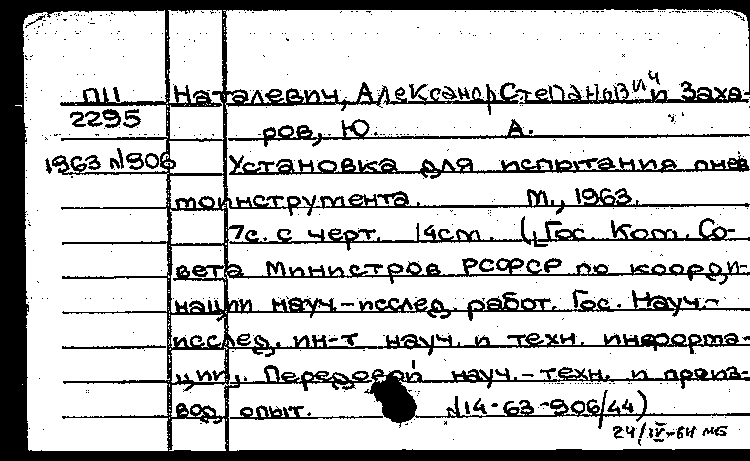 ПII Наталевич, Александр Степанович и Заха-
2295 ров, Ю. А.
1963 №906 Установка для испытания пнев
тоинструмента. М., 1963.
7с. с черт. 14см. (Гос. Ком. Со-
вета Министров РСФСР по коорди-
нации науч.-исслед. работ. Гос. Науч.-
исслед. ин-т науч. и техн. информа-
ции. Передовой науч.-техн. и произ-
вод. опыт. №14-63-906/44)
24/IV-64 МБ